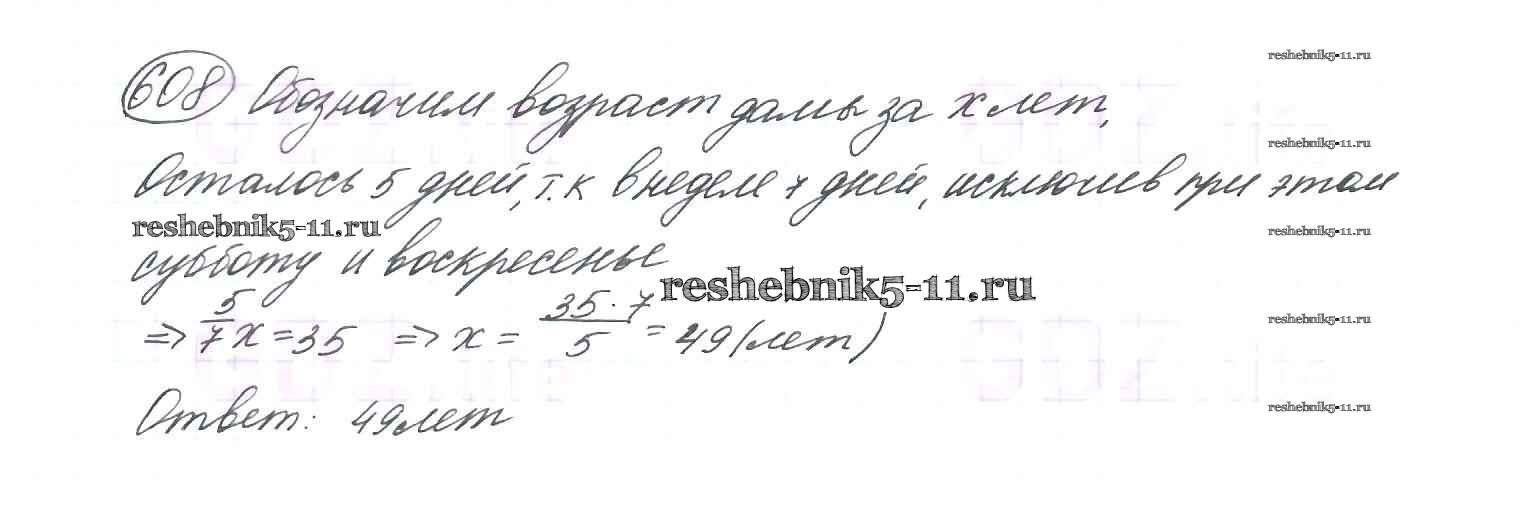 reshebnik5-11.ru
608 Обозначим возраст дамы за х лет,
reshebnik5-11.ru
Осталось 5 дней, т.к в неделе 7 дней, исключив при этом
reshebnik5-11.ru
reshebnik5-11.ru
субботу и воскресенье
reshebnik5-11.ru
=> 5/7 х = 35 => х = 35·7/5 = 49 (лет)
reshebnik5-11.ru
Ответ: 49 лет
reshebnik5-11.ru